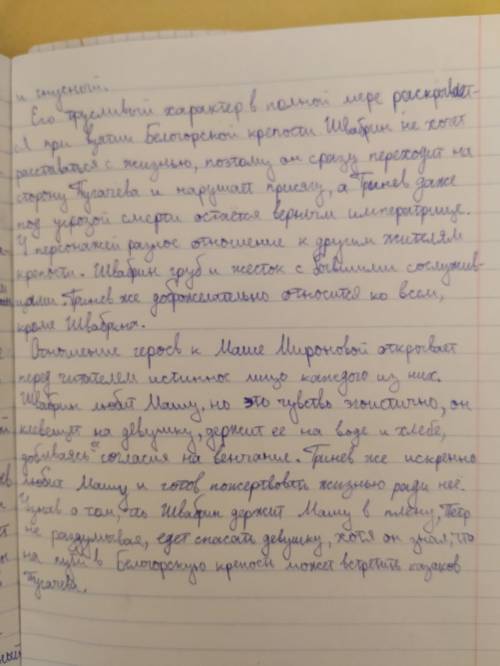 и гнусный.
Его трусливый характер в полной мере раскрывает-
ся при взятии Белогорской крепости. Швабрин не хочет
расставаться с жизнью, поэтому он сразу переходит на
сторону Пугачева и нарушает присягу, а Гринев даже
под угрозой смерти остаётся верным императрице.
У персонажей разное отношение к другим жителям
крепости. Швабрин груб и жесток с бывшими сослужив-
цами. Гринев же доброжелательно относится ко всем,
кроме Швабрина.
Отношение героев к Маше Мироновой открывает
перед читателем истинное лицо каждого из них.
Швабрин любит Машу, но это чувство эгоистично, он
клевещет на девушку, держит ее на воде и хлебе,
добиваясь согласия на венчание. Гринев же искренно
любит Машу и готов пожертвовать жизнью ради нее.
Узнав о том, что Швабрин держит Машу в плену, Петр
не раздумывая, едет спасать девушку, хотя он знал, что
на пути в Белогорскую крепость может встретить казаков
Пугачева.